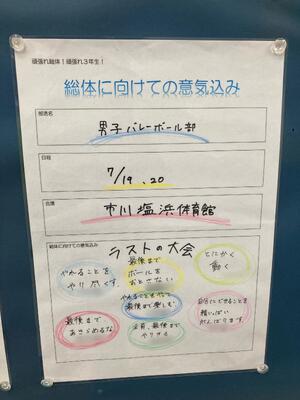 頑張れ総体！頑張れ３年生！
総体に向けての意気込み
部活名
男子バレーボール部
日程
7/19、20
会場
市川塩浜体育館
総体に向けての意気込み
ラストの大会
やれることを
やり尽くす。
最後まで
ボールを
おとさない
とにかく
動く
やることをやって
最後まで楽しむ
最後まで
あきらめるな
全員、最後まで
やりきる
自分にできることを
精いっぱい
がんばります。